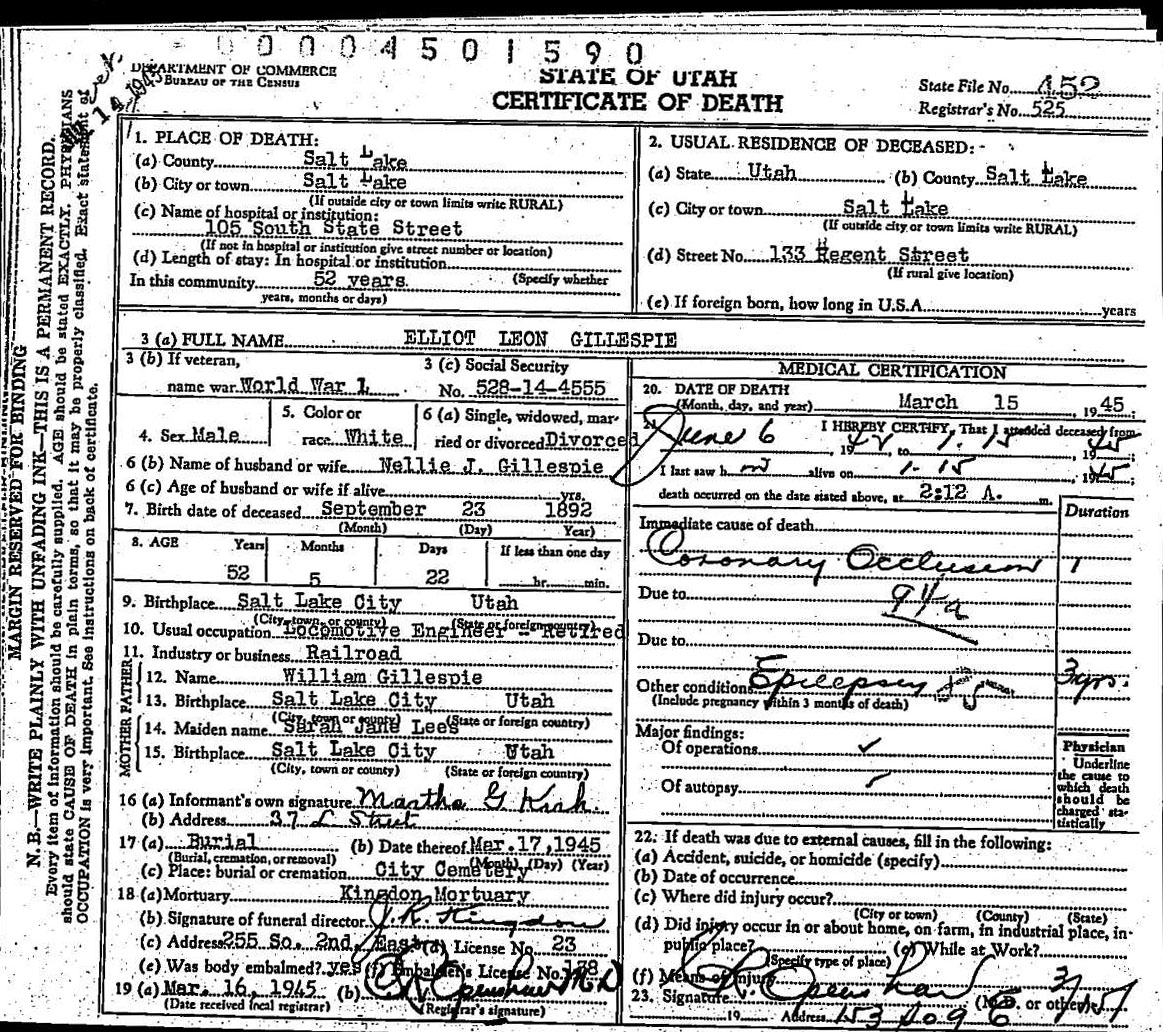 00004501590
DEPARTMENT OF COMMERCE
BUREAU OF THE CENSUS
STATE OF UTAH
CERTIFICATE OF DEATH
State File No. 452
Registrar's No. 525
MARGIN RESERVED FOR BINDING
N. B.—WRITE PLAINLY WITH UNFADING INK—THIS IS A PERMANENT RECORD.
Every item of information should be carefully supplied. AGE should be stated EXACTLY. PHYSICIANS
should state CAUSE OF DEATH in plain terms, so that it may be properly classified. Exact statement of
OCCUPATION is very important. See instructions on back of certificate.
1. PLACE OF DEATH:
(a) County Salt Lake
(b) City or town Salt Lake
(If outside city or town limits write RURAL)
(c) Name of hospital or institution:
105 South State Street
(If not in hospital or institution give street number or location)
(d) Length of stay: In hospital or institution
In this community 52 years. (Specify whether
years, months or days)
2. USUAL RESIDENCE OF DECEASED:
(a) State Utah (b) County Salt Lake
(c) City or town Salt Lake
(If outside city or town limits write RURAL)
(d) Street No. 133 Regent Street
(If rural give location)
(e) If foreign born, how long in U.S.A. years
3 (a) FULL NAME ELLIOT LEON GILLESPIE
3 (b) If veteran, 3 (c) Social Security
name war World War 1 No. 528-14-4555
5. Color or 6 (a) Single, widowed, mar-
4. Sex Male race White ried or divorced Divorced
6 (b) Name of husband or wife Nellie J. Gillespie
6 (c) Age of husband or wife if alive yrs.
7. Birth date of deceased September 23 1892
(Month) (Day) Year)
8. AGE Years Months Days If less than one day
52 5 22 hr. min.
9. Birthplace Salt Lake City Utah
(City, town, or county) (State or foreign country)
10. Usual occupation Locomotive Engineer - Retired
11. Industry or business Railroad
FATHER
12. Name William Gillespie
13. Birthplace Salt Lake City Utah
(City, town or county) (State or foreign country)
MOTHER
14. Maiden name Sarah Jane Lees
15. Birthplace Salt Lake City Utah
(City, town or county) (State or foreign country)
16 (a) Informant's own signature Martha G Kirk.
(b) Address 37 L Street
17 (a) Burial (b) Date thereof Mar.17,1945
(Burial, cremation, or removal) (Month) (Day) (Year)
(c) Place: burial or cremation City Cemetery
18 (a) Mortuary Kingdon Mortuary
(b) Signature of funeral director J. R. Kingdon
(c) Address 255 So. 2nd, East (d) License No. 23
(e) Was body embalmed? yes (f) Embalmer's License No. 138
19 (a) Mar. 16, 1945 (b) Openshaw M D
(Date received local registrar) (Registrar's signature)
MEDICAL CERTIFICATION
20. DATE OF DEATH
(Month, day, and year) March 15 , 1945;
21. I HEREBY CERTIFY, That I attended deceased from
June 6, 1944, to 1.15, 1945
I last saw him alive on 1.15, 1945
death occurred on the date stated above, at 2:12 A. m.
Duration
Immediate cause of death
Coronary Occlusion 1
Due to 94a
Due to
Other conditions Epilepsy 85 3 yrs.
(Include pregnancy within 3 months of death)
Major findings:
Of operations ✓
Of autopsy
Physician
Underline
the cause to
which death
should be
charged sta-
tistically
22. If death was due to external causes, fill in the following:
(a) Accident, suicide, or homicide (specify)
(b) Date of occurrence
(c) Where did injury occur?
(City or town) (County) (State)
(d) Did injury occur in or about home, on farm, in industrial place, in-
public place? (e) While at Work?
(Specify type of place)
(f) Means of injury
23. Signature Openshaw (M.D. or other)
19 Address